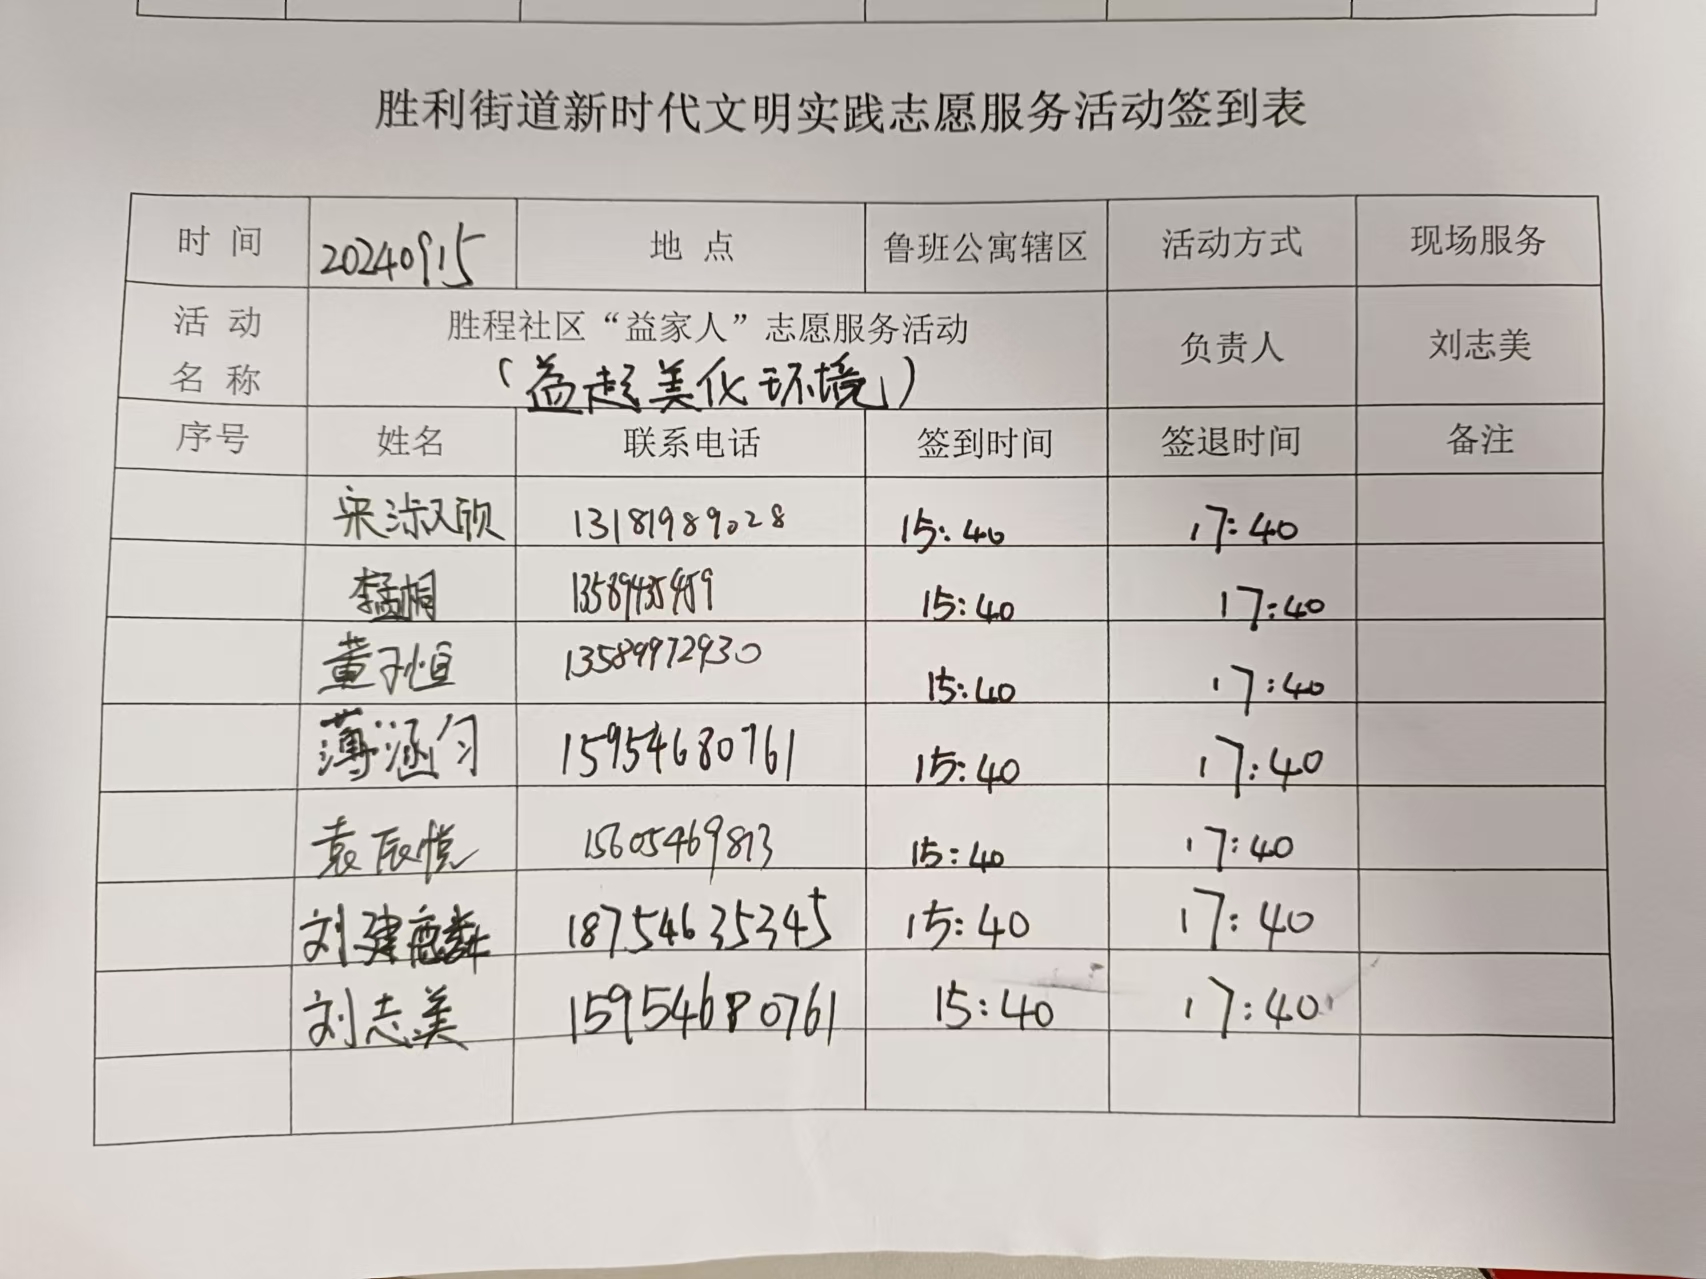 胜利街道新时代文明实践志愿服务活动签到表
时间 20240915 地点 鲁班公寓辖区 活动方式 现场服务
活动名称 胜程社区“益家人”志愿服务活动 负责人 刘志美
（益起美化环境）
序号 姓名 联系电话 签到时间 签退时间 备注
宋淑欣 13181989028 15:40 17:40
李孟桐 13589435459 15:40 17:40
董子恒 13589972930 15:40 17:40
薄涵匀 15954680761 15:40 17:40
袁辰悦 15605469813 15:40 17:40
刘建麟 18754635345 15:40 17:40
刘志美 15954680761 15:40 17:40